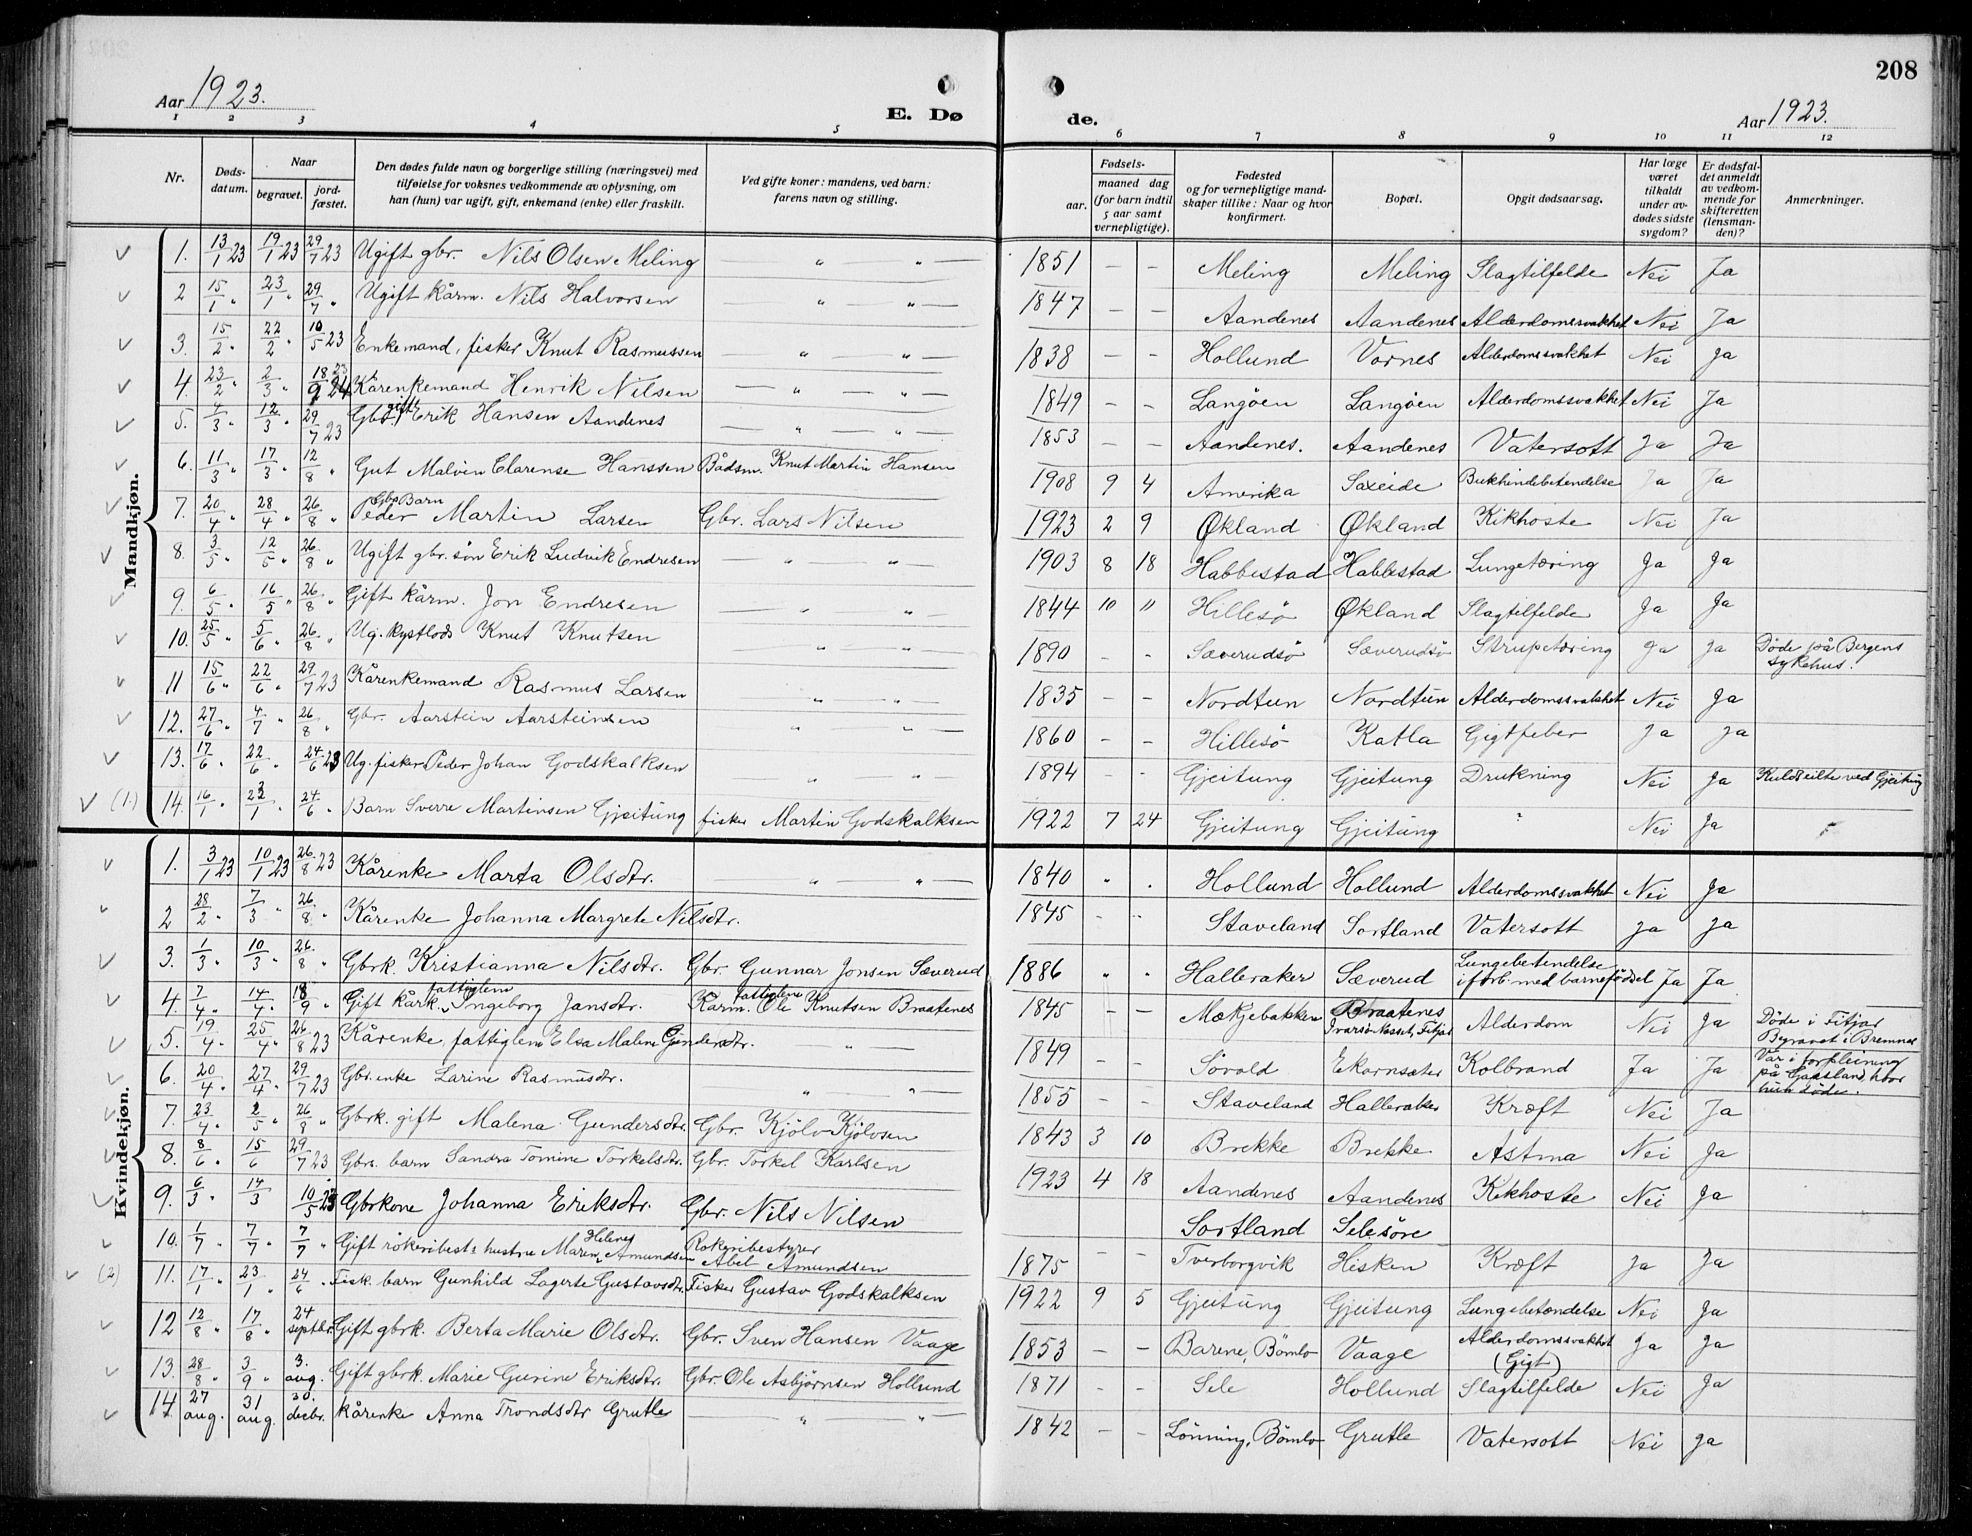 208
Aar 1923.
E. Dø
de.
Aar 1923.
1 2 3 4 5 6 7 8 9 10 11 12
Nr.
Døds-
datum.
Naar
begravet.
jord-
fæstet.
Den dødes fulde navn og borgerlige stilling (næringsvei) med
tilføielse for voksnes vedkommende av oplysning, om
han (hun) var ugift, gift, enkemand (enke) eller fraskilt.
Ved gifte koner: mandens, ved barn:
farens navn og stilling.
Fødsels-
aar.
maaned dag
(for barn indtil
5 aar samt
vernepligtige).
Fødested
og for vernepligtige mand-
skaper tillike: Naar og hvor
konfirmert.
Bopæl.
Opgit dødsaarsag.
Har læge
været
tilkaldt
under av-
dødes sidste
sygdom?
Er dødsfal-
det anmeldt
av vedkom-
mende for
skifteretten
(lensman-
den)?
Anmerkninger.
Mandkjøn.
1. 13/1 23 19/1 23 29/7 23 Ugift gbr. Nils Olsen Meling — „ — „ — 1851 — — Meling Meling Slagtilfelde Nei Ja
2 15/1 „ 23/1 „ 29/7 „ Ugift kårm. Nils Halvorsen — „ — „ — 1847 — — Aandenes Aandenes Alderdomssvakhet Nei Ja
3. 15/2 „ 22/2 „ 10/5 23 Enkemand, fisker Knut Rasmussen — „ — „ — 1838 — — Hollund Vornes Alderdomssvakhet Nei Ja
4. 23/2 „ 2/3 „ 18/9 Kårenkemand Henrik Nilsen — „ — „ — 1849 — — Langøen Langøen Alderdomssvakhet Nei Ja
5. 4/3 „ 12/3 „ 29/7 23 Gbr. gift Erik Hansen Aandenes — „ — „ — 1853 — — Aandenes. Aandenes Vatersott Ja Ja
6. 11/3 „ 17/3 „ 12/8 „ Gut Malvin Clarense Hanssen Bådsm. Knut Martin Hansen 1908 9 4 Amerika Saxeide Bukhindebetendelse Ja Ja
7. 20/4 „ 28/4 „ 26/8 „ Gbs Barn Peder Martin Larsen Gbr. Lars Nilsen 1923 2 9 Økland Økland Kikhoste Nei Ja
8. 3/5 „ 12/5 „ 26/8 „ Ugift gbr. søn Erik Ludvik Endresen — „ — „ — 1903 8 18 Habbestad Habbestad Lungetæring Ja Ja
9. 6/5 „ 16/5 „ 26/8 „ Gift kårm. Jon Endresen — „ — „ — 1844 10 11 Hillesø Økland Slagtilfelde Ja Ja
10. 25/5 „ 5/6 „ 26/8 „ Ug. kystlods Knut Knutsen — „ — „ — 1890 — — Sæverudsø Sæverudsø Strupetæring Ja Ja Døde på Bergens
sykehus.
11 15/6 „ 22/6 „ 29/7 23 Kårenkemand Rasmus Larsen — „ — „ — 1835 — — Nordtun Nordtun Alderdomssvakhet Nei Ja
12. 27/6 „ 4/7 „ 26/8 „ Gbr. Aarstein Aarsteinsen — „ — „ — 1860 — — Hillesø Katla Gigtfeber Ja Ja
13. 17/6 „ 22/6 „ 24/6 23 Ug. fisker Peder Johan Godskalksen — „ — „ — 1894 — — Gjeitung Gjeitung Drukning Nei Ja Kuldseilte ved Gjeitung
(1.) 14. 16/1 „ 23/1 „ 24/6 „ Barn Sverre Martinsen Gjeitung fisker Martin Godskalksen 1922 7 24 Gjeitung Gjeitung Nei Ja
Kvindekjøn.
1. 3/1 23 10/1 23 26/8 23 Kårenke Marta Olsdtr. — „ — „ — 1840 „ „ Hollund Hollund Alderdomssvakhet Nei Ja
2 28/2 „ 7/3 „ 26/8 „ Kårenke Johanna Margrete Nilsdtr. 1845 — — Staveland Sortland Vatersott Ja Ja
3. 1/3 „ 10/3 „ 26/8 „ Gbrk. Kristianna Nilsdtr. Gbr. Gunnar Jonsen Sæverud 1886 „ „ Halleraker Sæverud Lungebetendelse
i forb. med barnefødsel Ja Ja
4. 7/4 „ 14/4 „ 18/9 „ Gift kårk. fattiglem Ingeborg Jansdtr. Kårm. fattiglem Ole Knutsen Braatenes 1845 — — Mækjebakken Braatenes Alderdom Nei Ja Døde i Fitjar
Begravet i Bremnes
5. 19/4 „ 25/4 „ 26/8 23 Kårenke, fattiglem Elsa Malene Gundersdtr. — „ — 1849 — — Søvold Ekornsæter Kolbrand Ja Ja Var i forpleining
på Gaasland, hvor
hun døde.
6. 20/4 „ 27/4 „ 29/7 23 Gbr. enke Larine Rasmusdtr. „ „ — 1855 — — Staveland Halleraker Kræft Nei Ja
7. 23/4 „ 2/5 „ 26/8 „ Gbrk. gift Malena Gundersdtr. Gbr. Kjølv Kjølvsen 1843 3 10 Brekke Brekke Astma Nei Ja
8. 8/6 „ 15/6 29/7 23 Gbrs. barn Sandra Tomine Torkelsdtr. Gbr. Torkel Karlsen 1923 4 18 Aandenes Aandenes Kikhoste Nei Ja
9. 6/3 „ 14/3 10/5 23 Gbrkone Johanna Eriksdtr. Gbr. Nils Nilsen Sortland Selesøre
10. 1/7 „ 7/7 „ 7/7 „ Gift røkeribest.s hustru Maren Helene Amundsen Røkeribestyrer
Abel Amundsen 1875 — — Tverborgvik Hisken Kræft Ja Ja
(2) 11. 17/1 „ 23/1 „ 24/6 „ Fisk. barn Gunhild Lagerte Gustavsdtr. Fisker Gustav Godskalksen 1922 9 5 Gjeitung Gjeitung Lungebetændelse Nei Ja
12 12/8 „ 17/8 „ 24 septbr. Gift gbrk. Berta Marie Olsdtr. Gbr. Sven Hansen Vaage 1853 — — Barene, Bømlo Vaage Alderdomssvakhet
(Gigt) Ja Ja
13. 28/8 „ 3/9 „ 3. aug. Gift gbrk. Marie Gurine Eriksdtr. Gbr. Ole Asbjørnsen Hollund 1871 — — Sele Hollund Slagtilfelde Nei Ja
14 27 aug. 31 aug. 30. decbr. kårenke Anna Trondsdtr Grutle — „ — „ — 1842 — — Lønning, Bømlo Grutle Vatersott Nei Ja